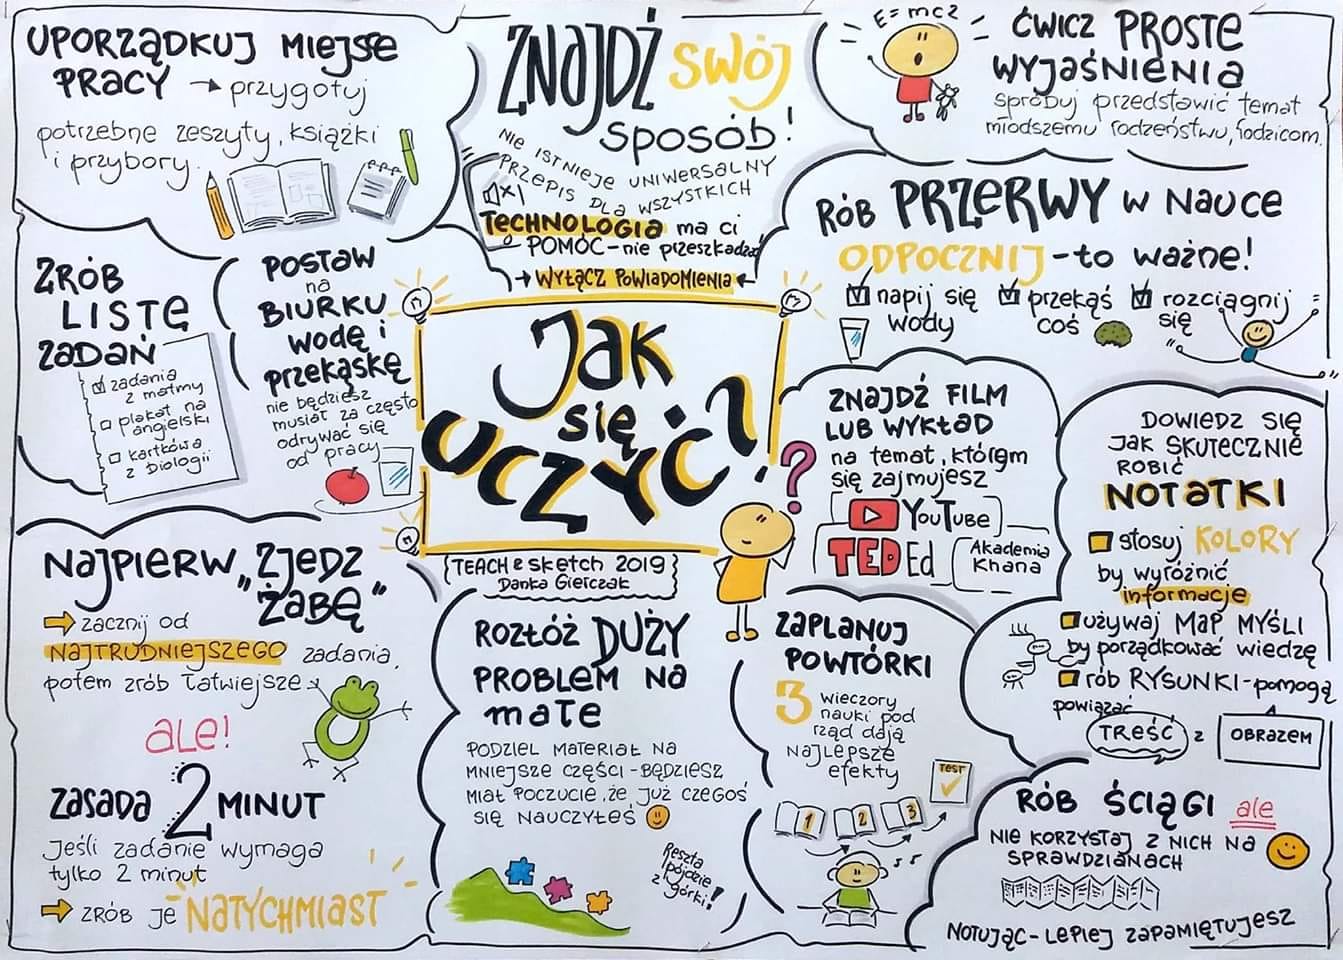 UPORZĄDKUJ MIEJSE
PRACY → przygotuj
potrzebne zeszyty, książki
i przybory.
ZNAJDŹ SWÓJ
SPOSÓB!
NIE ISTNIEJE UNIWERSALNY
PRZEPIS DLA WSZYSTKICH
TECHNOLOGIA ma ci
POMÓC - nie przeszkadzać
→ WYŁĄCZ POWIADOMIENIA ←
E=mc2
ĆWICZ PROSTE
WYJAŚNIENIA
spróbuj przedstawić temat
młodszemu rodzeństwu, rodzicom.
RÓB PRZERWY W NAUCE
ODPOCZNIJ - to ważne!
napij się
wody
przekąś
coś
rozciągnij
się
ZRÓB
LISTĘ
ZADAŃ
zadania
z matmy
plakat na
angielski
kartkówa
z biologii
POSTAW
na
BIURKU
wodę i
przekąskę
nie będziesz
musiał za często
odrywać się
od pracy
Jak
się
uczyć?
?
TEACH & Sketch 2019
Danka Gierczak
ZNAJDŹ FILM
LUB WYKŁAD
na temat, którym
się zajmujesz
YouTube
TED Ed
Akademia
Khana
DOWIEDZ SIĘ
JAK SKUTECZNIE
ROBIĆ
NOTATKI
stosuj KOLORY
by wyróżnić
informacje
używaj MAP MYŚLI
by porządkować wiedzę
rób RYSUNKI - pomogą
powiązać
TREŚĆ z OBRAZEM
NAJPIERW „ZJEDZ
ŻABĘ"
zacznij od
NAJTRUDNIEJSZEGO zadania,
potem zrób łatwiejsze
ALE!
ZASADA 2 MINUT
Jeśli zadanie wymaga
tylko 2 minut
ZRÓB JE NATYCHMIAST
ROZŁÓŻ DUŻY
PROBLEM NA
MAŁE
PODZIEL MATERIAŁ NA
MNIEJSZE CZĘŚCI - BĘDZIESZ
MIAŁ POCZUCIE, ŻE JUŻ CZEGOŚ
SIĘ NAUCZYŁEŚ
Reszta
pójdzie
z górki!
ZAPLANUJ
POWTÓRKI
3 wieczory
nauki pod
rząd dają
NAJLEPSZE
efekty
TEST
1 2 3
RÓB ŚCIĄGI ale
NIE KORZYSTAJ Z NICH NA
SPRAWDZIANACH
NOTUJĄC - LEPIEJ ZAPAMIĘTUJESZ